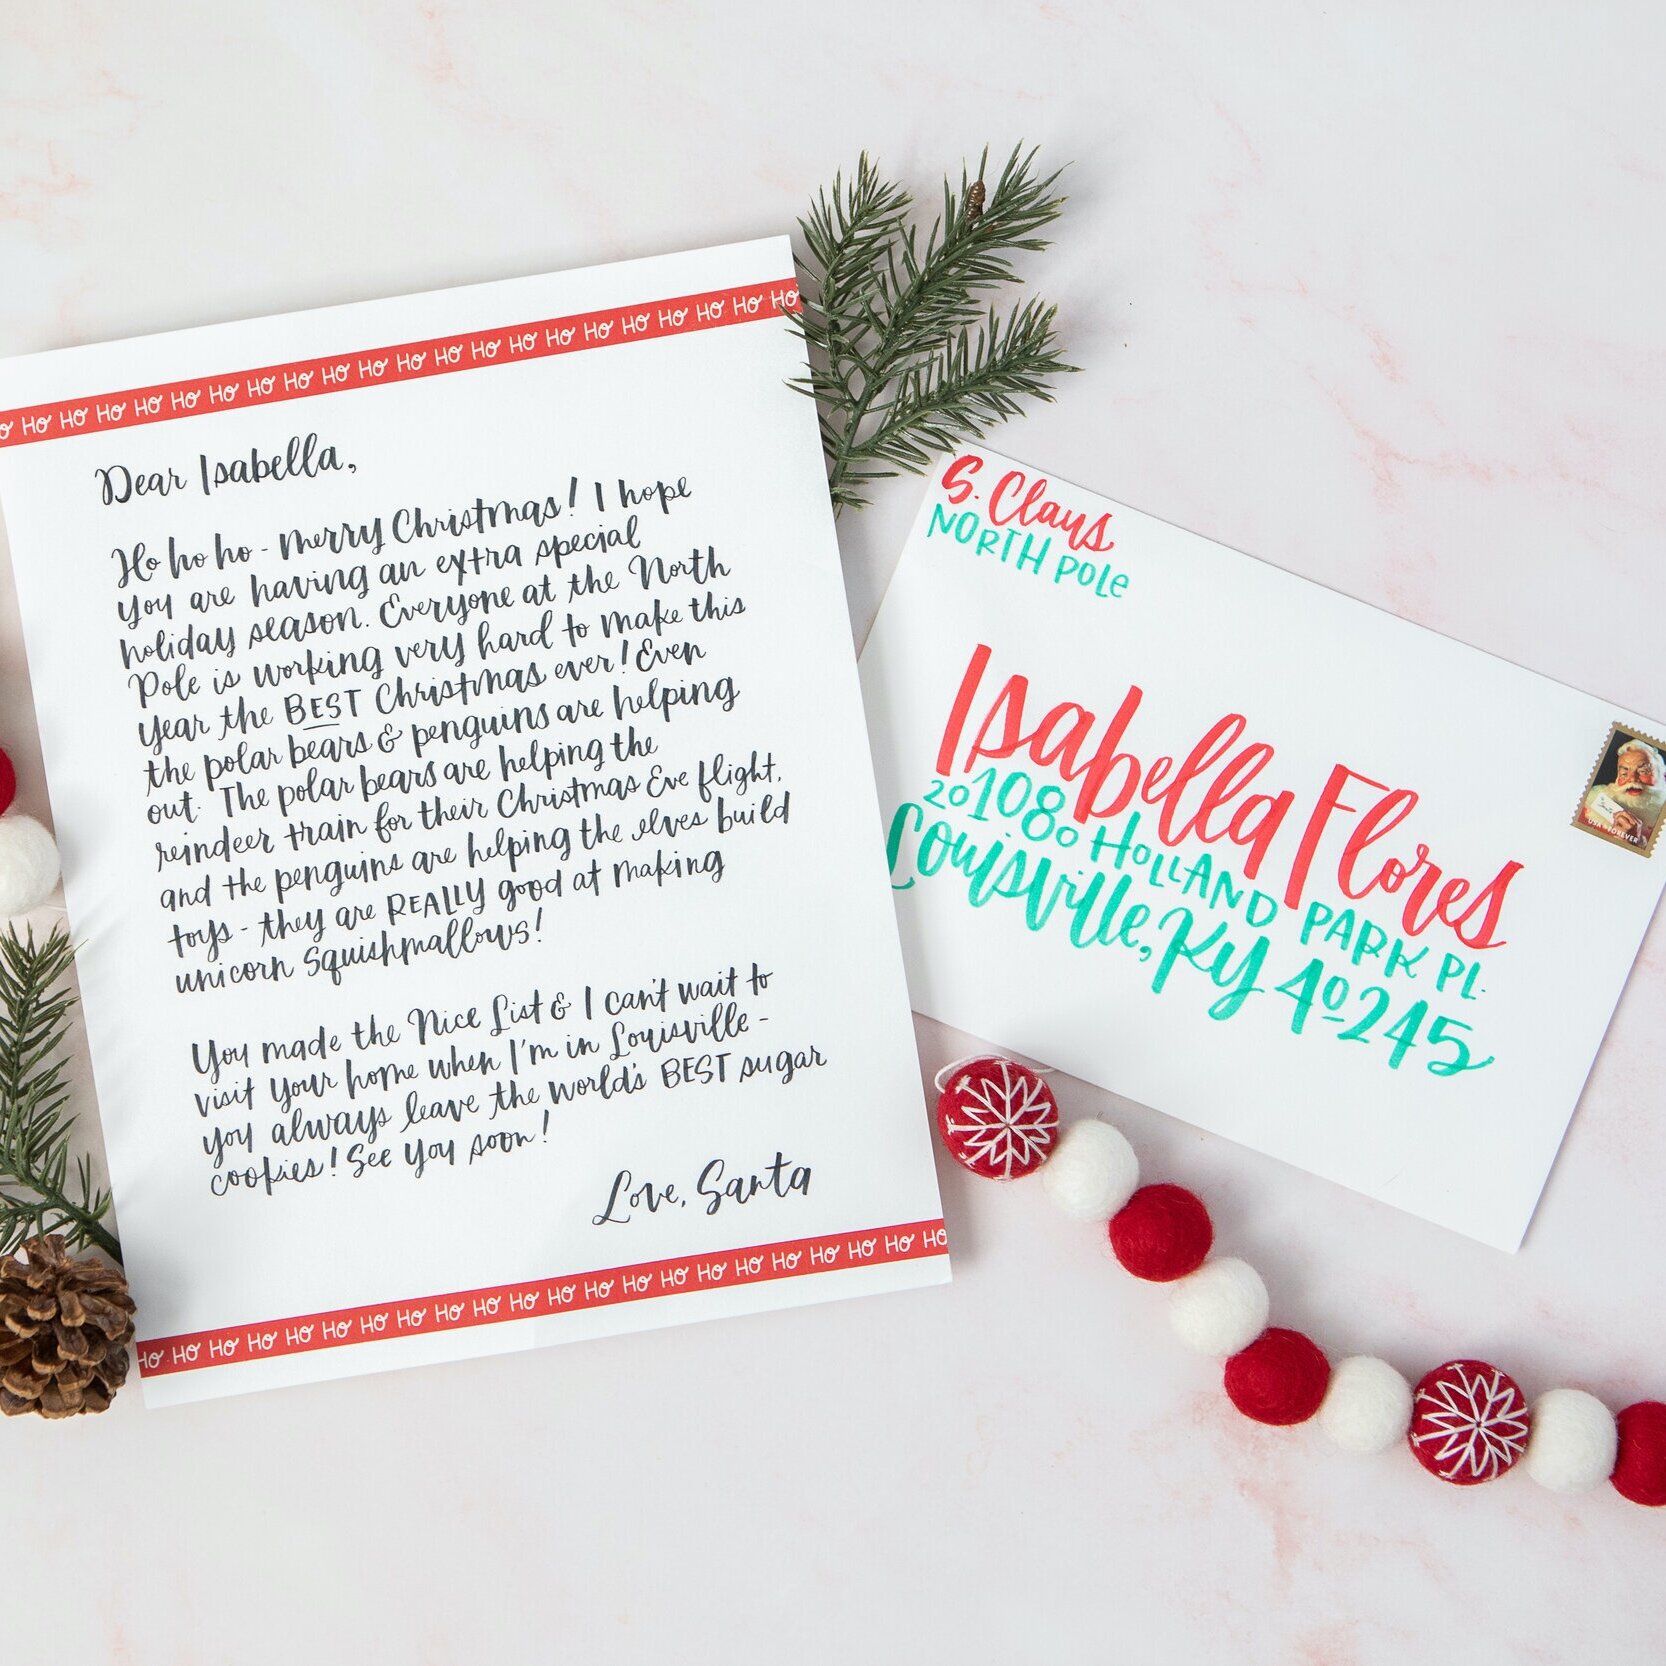 Ho Ho Ho Ho Ho Ho Ho Ho Ho Ho Ho Ho Ho Ho Ho Ho Ho Ho Ho Ho Ho
Dear Isabella,
Ho ho ho - Merry Christmas! I hope
you are having an extra special
holiday season. Everyone at the North
Pole is working very hard to make this
year the BEST Christmas ever! Even
the polar bears & penguins are helping
out. The polar bears are helping the
reindeer train for their Christmas Eve flight,
and the penguins are helping the elves build
toys - they are REALLY good at making
unicorn Squishmallows!
You made the Nice List & I can't wait to
visit your home when I'm in Louisville -
you always leave the world's BEST sugar
cookies! See you soon!
Love, Santa
Ho Ho Ho Ho Ho Ho Ho Ho Ho Ho Ho Ho Ho Ho Ho Ho Ho Ho Ho Ho Ho Ho
S. Claus
NORTH POLE
Isabella Flores
201080 HOLLAND PARK PL.
Louisville, KY 40245
USA FOREVER